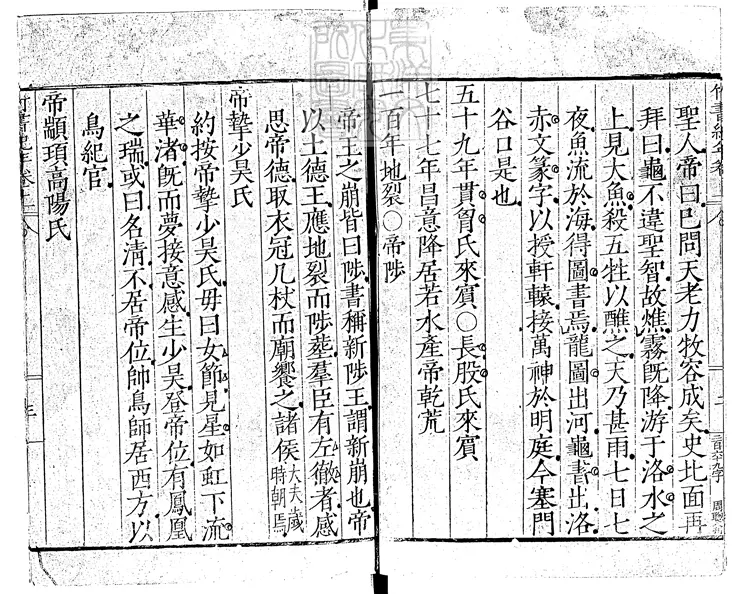 聖人帝曰已問天老力牧容成矣史北面再
拜曰龜不違聖智故燋霧既降游于洛水之
上見大魚殺五牲以醮之天乃甚雨七日七
夜魚流於海得圖書焉龍圖出河龜書出洛
赤文篆字以授軒轅接萬神於明庭今塞門
谷口是也
五十九年貫胷氏來賓〇長股氏來賓
七十七年昌意降居若水產帝乾荒
一百年地裂〇帝陟
帝王之崩皆曰陟書稱新陟王謂新崩也帝
以土德王應地裂而陟塟羣臣有左徹者感
思帝德取衣冠几杖而廟饗之諸侯大夫歲時朝焉
帝摯少昊氏
約按帝摯少昊氏母曰女節見星如虹下流
華渚既而夢接意感生少昊登帝位有鳳凰
之瑞或曰名清不居帝位帥鳥師居西方以
鳥紀官
帝顓頊高陽氏
竹書紀年卷上